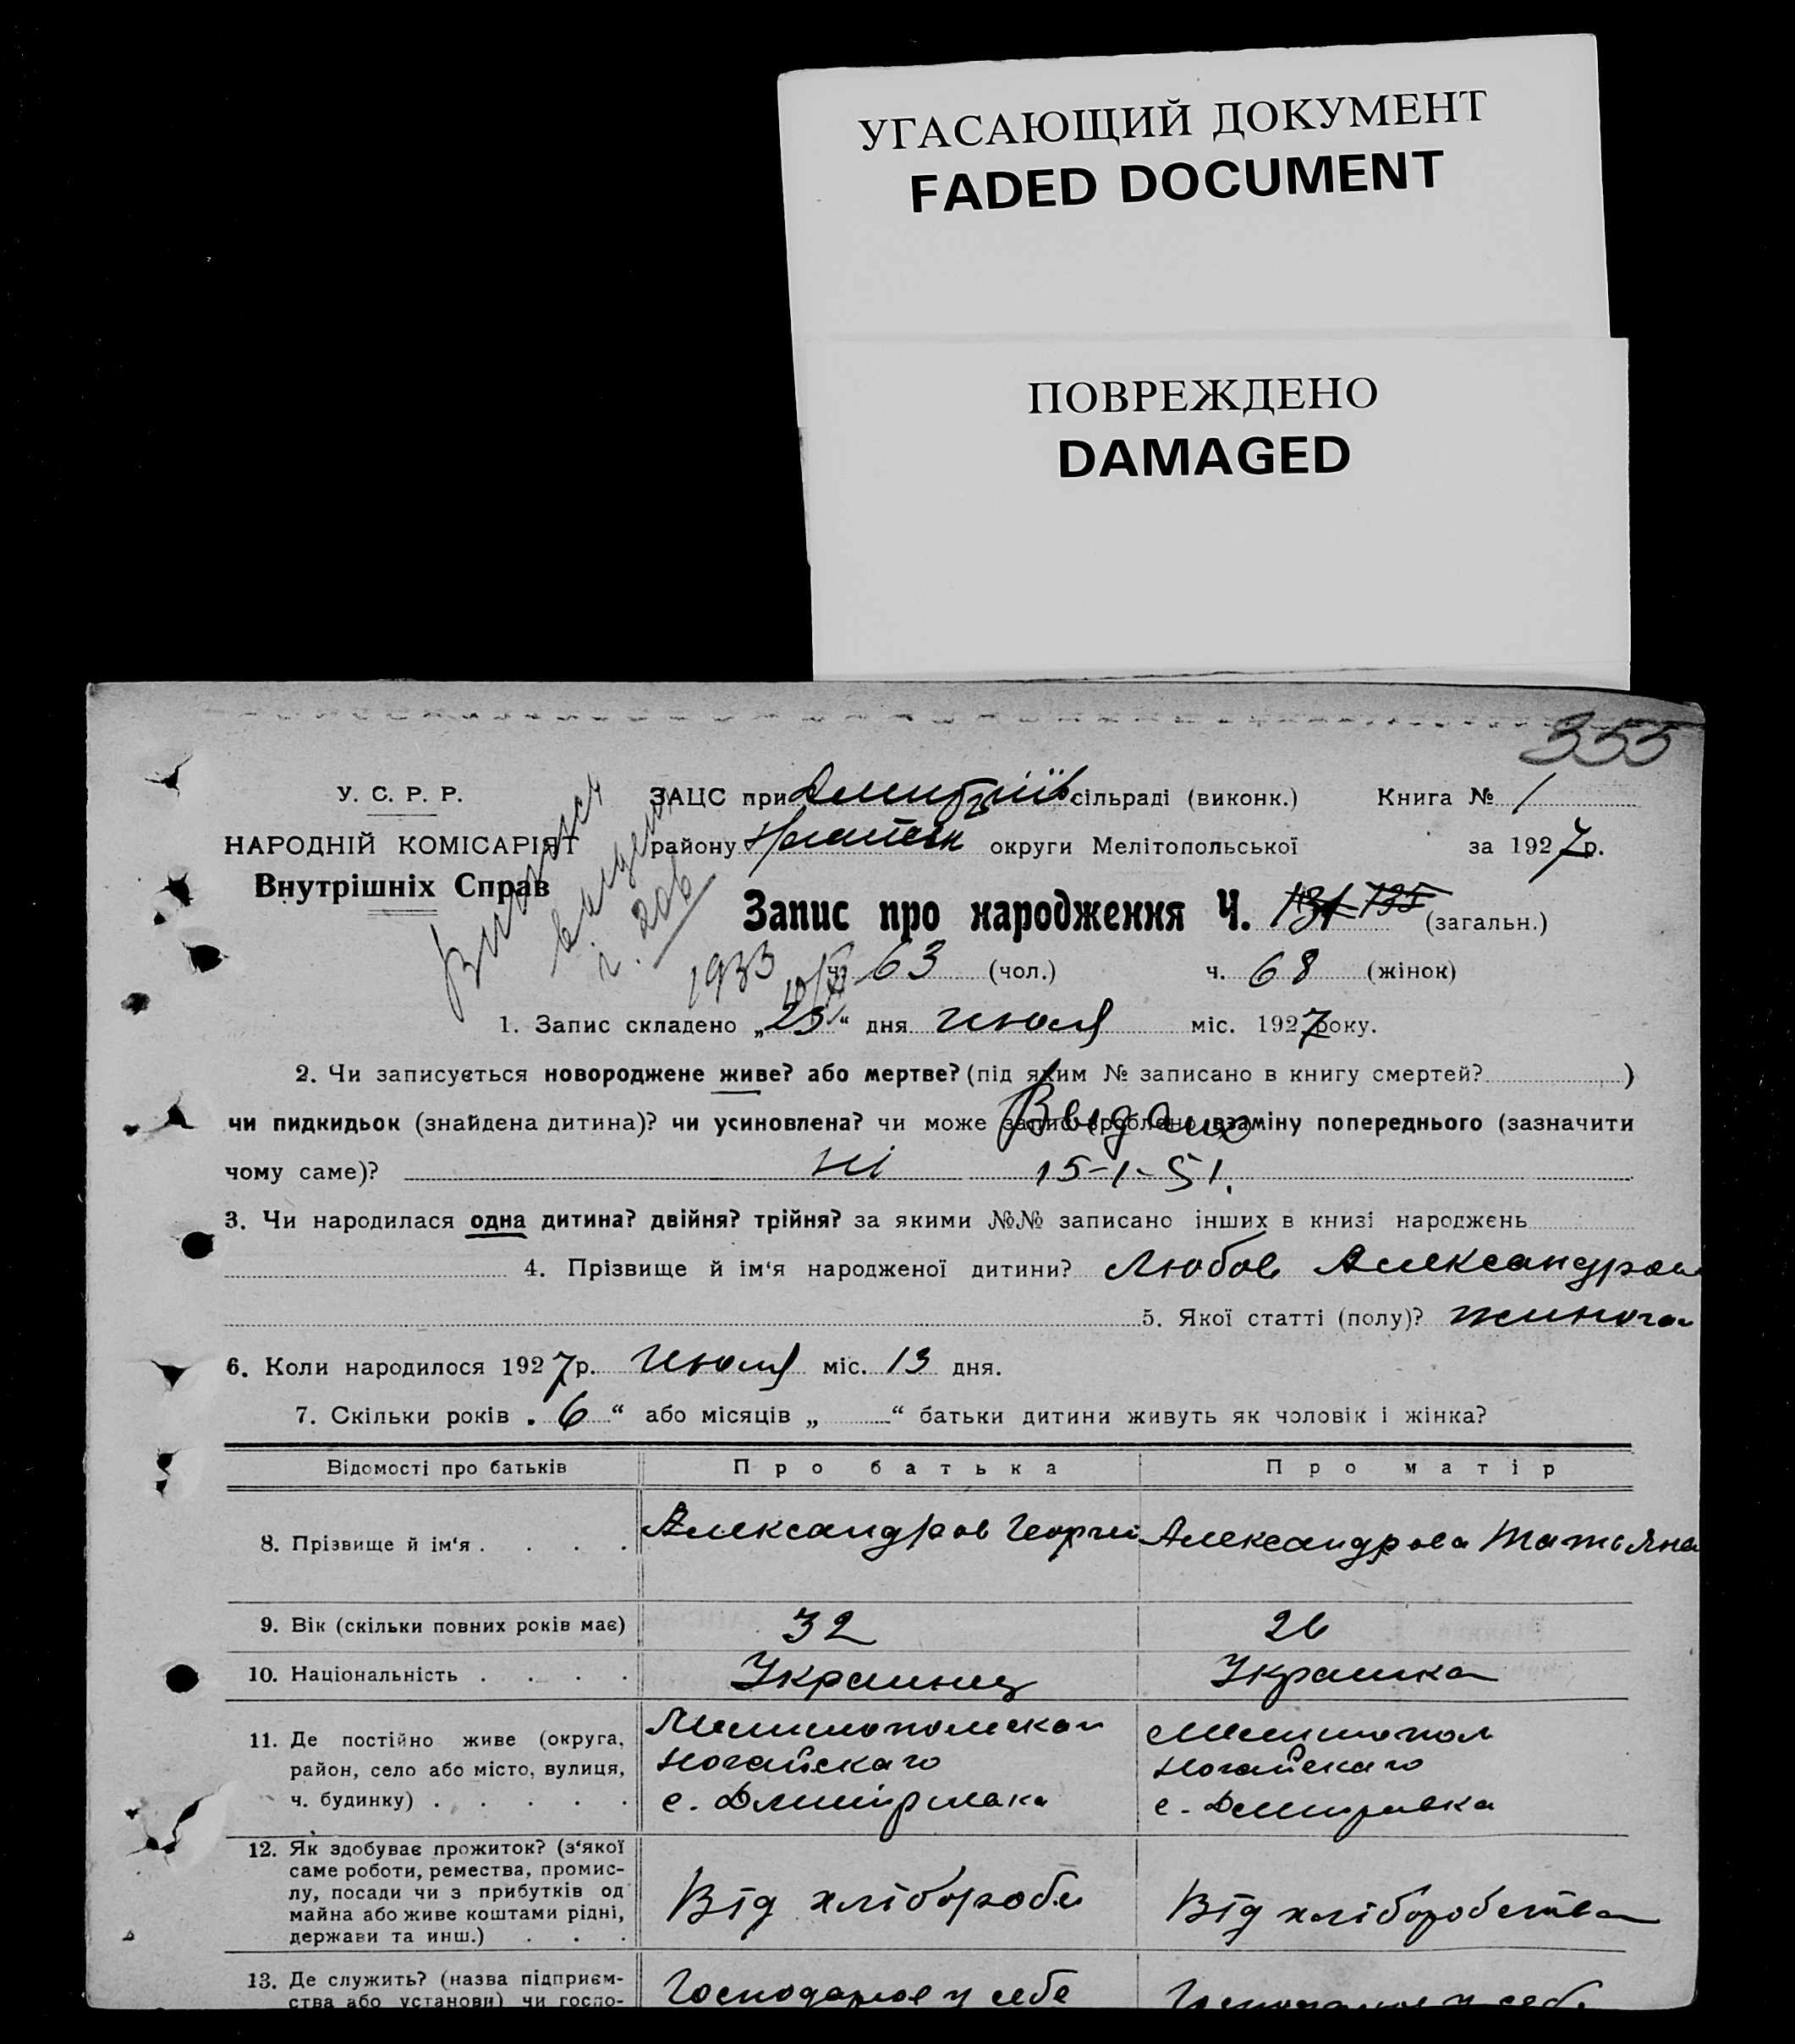 УГАСАЮЩИЙ ДОКУМЕНТ
FADED DOCUMENT
ПОВРЕЖДЕНО
DAMAGED
355
У. С. Р. Р.
НАРОДНІЙ КОМІСАРІЯТ
Внутрішніх Справ
ЗАЦС при Дмитріїв сільраді (виконк.) Книга № 1
району округи Мелітопольської за 1927 р.
Запис про народження Ч. 131 135 (загальн.)
1933 ч. 63 (чол.) ч. 68 (жінок)
1. Запис складено „23“ дня Июля міс. 1927 року.
2. Чи записується новороджене живе? або мертве? (під яким № записано в книгу смертей? )
чи пидкидьок (знайдена дитина)? чи усиновлена? чи може запис зроблено взаміну попереднього (зазначити
чому саме)? ні 15-1-51.
3. Чи народилася одна дитина? двійня? трійня? за якими №№ записано інших в книзі народжень
4. Прізвище й ім‘я народженої дитини? Любов Александров
5. Якої статті (полу)? жиноча
6. Коли народилося 1927 р. Июля міс. 13 дня.
7. Скільки років „ 6 “ або місяців „ “ батьки дитини живуть як чоловік і жінка?
Відомості про батьків Про батька Про матір
8. Прізвище й ім‘я . . . . Александров Георгий Александрова Татьяна
9. Вік (скільки повних років має) 32 26
10. Національність . . . . Украинец Украинка
11. Де постійно живе (округа, Мелитополскои Мелитопол
район, село або місто, вулиця, Ногайскаго Ногайскаго
ч. будинку) . . . . . с. Дмитривка с. Дмитривка
12. Як здобуває прожиток? (з‘якої
саме роботи, ремества, промис-
лу, посади чи з прибутків од Від хлібороби Від хліборобства
майна або живе коштами рідні,
держави та инш.) . . .
13. Де служить? (назва підприєм- у себе
ства або установи) чи госпо-